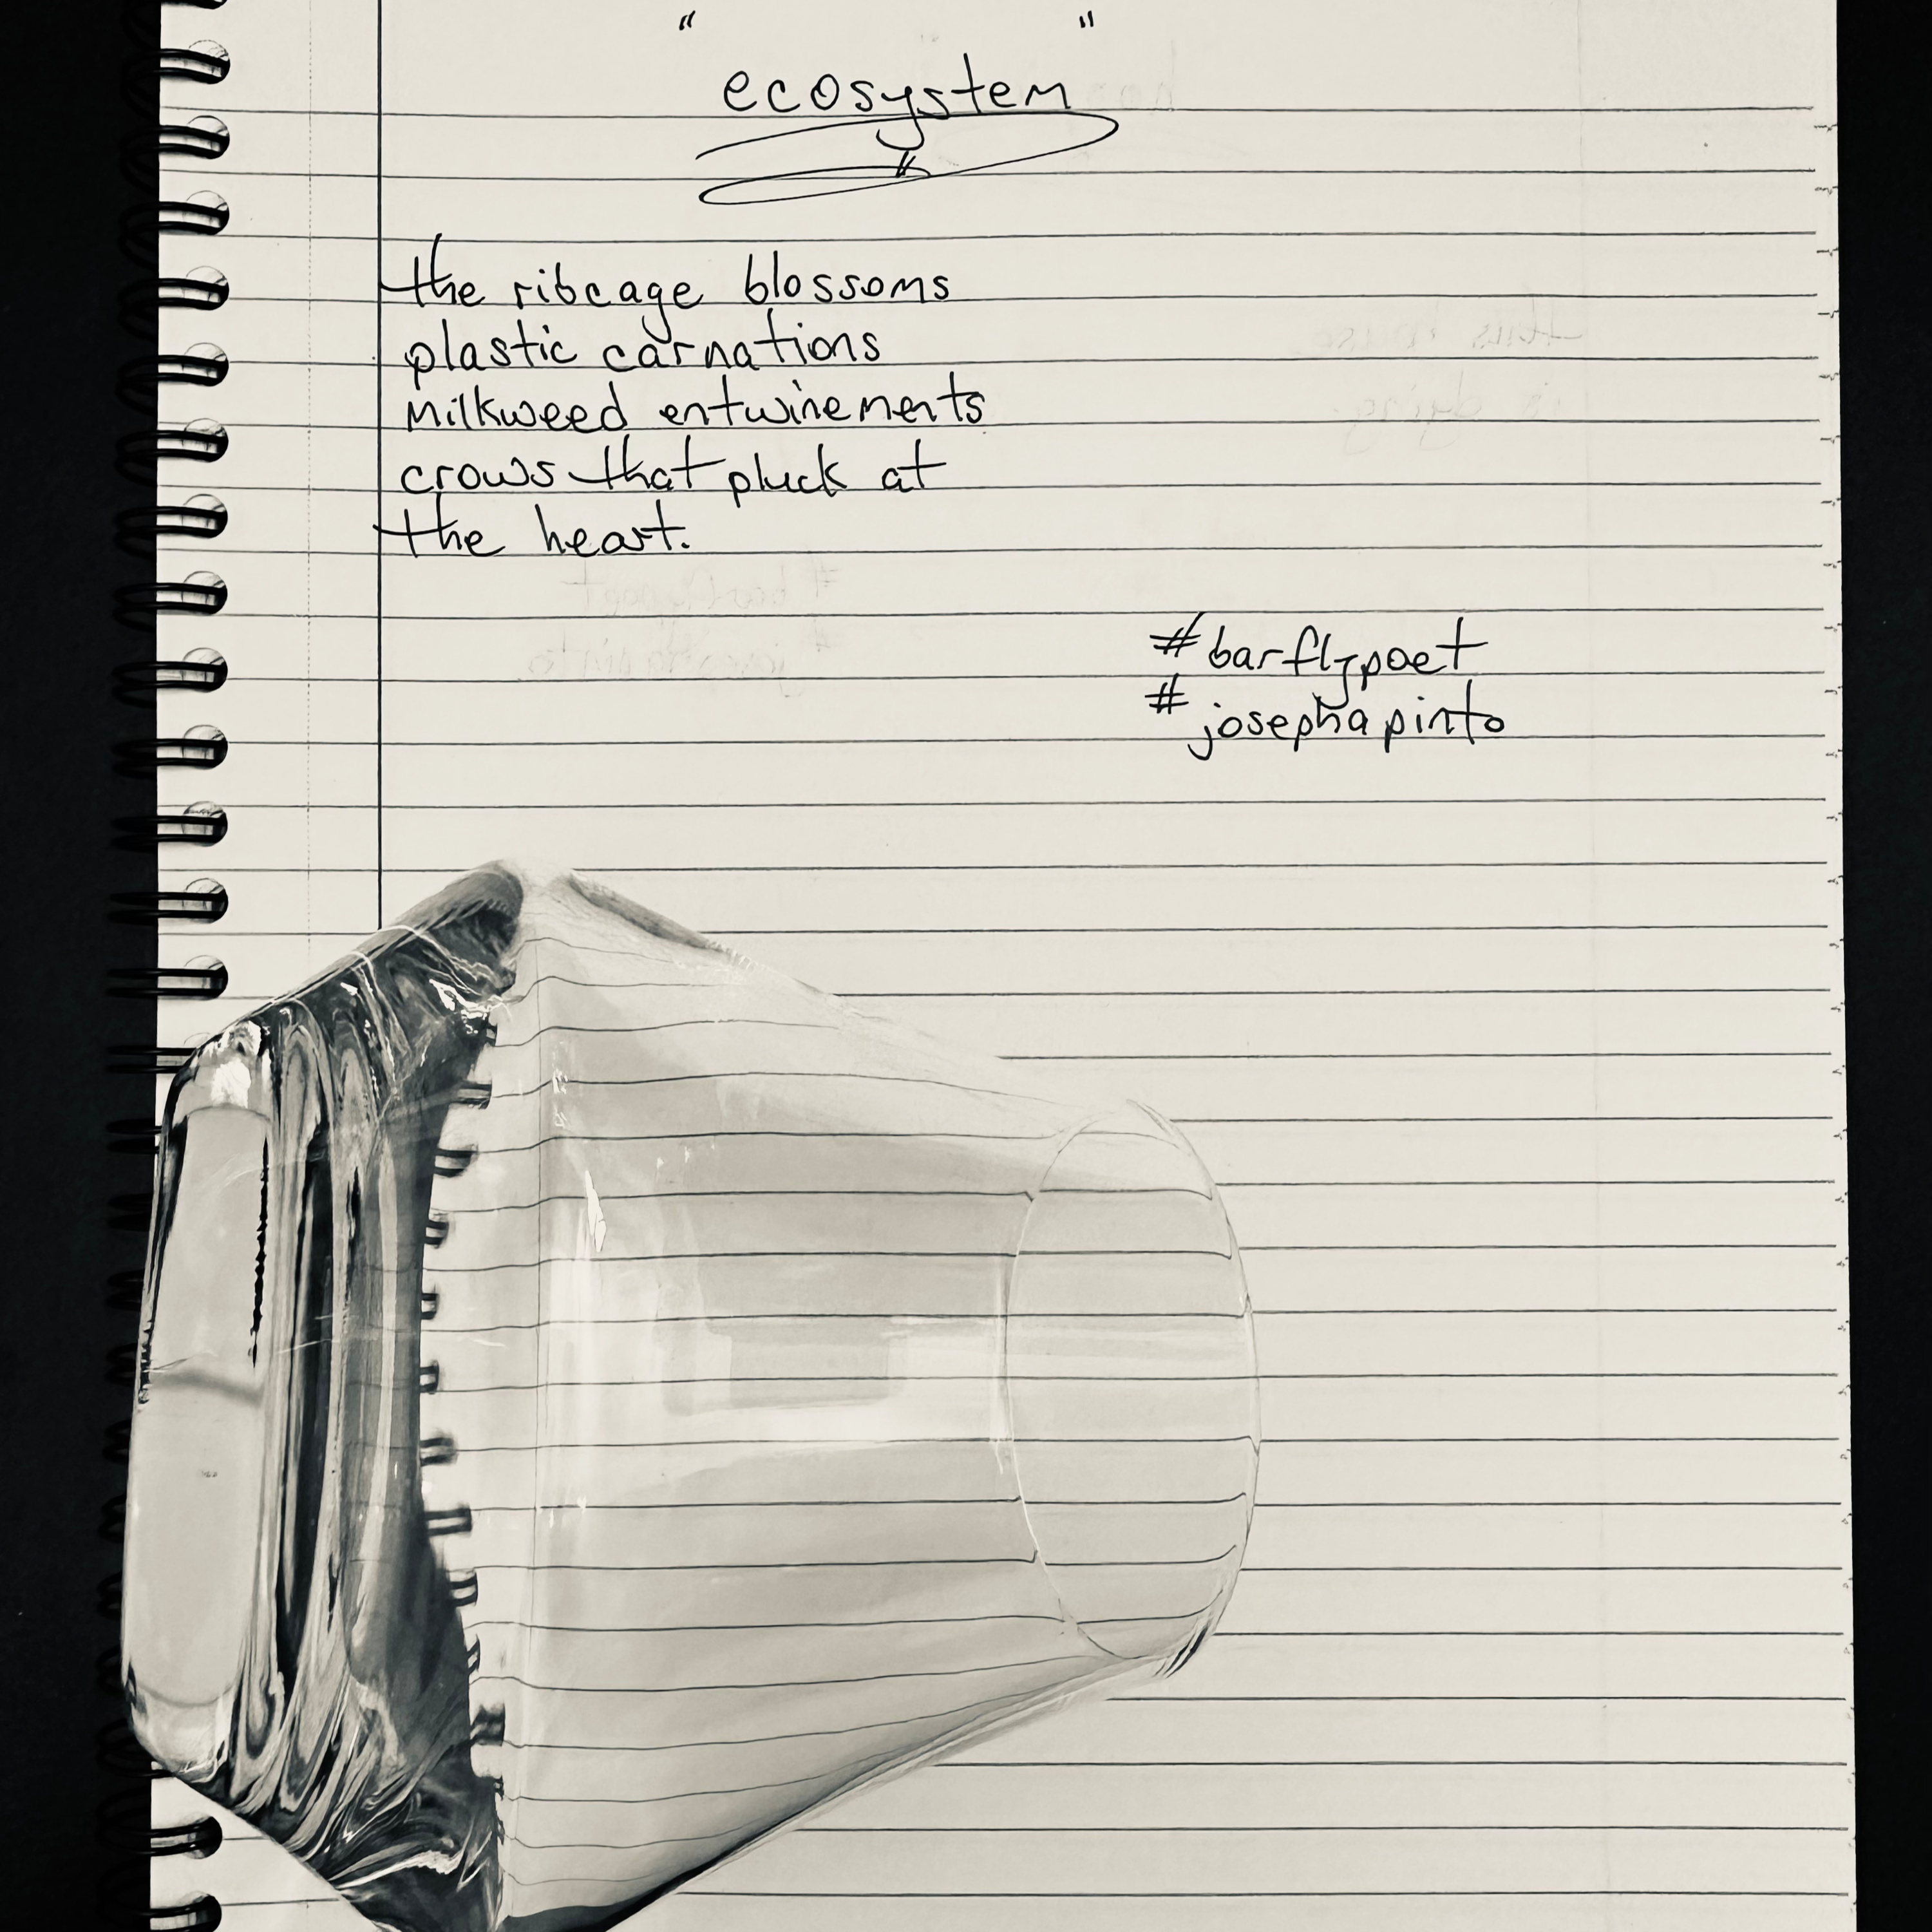 " "
ecosystem
the ribcage blossoms
plastic carnations
milkweed entwinements
crows that pluck at
the heart.
#barflypoet
#josephapinto